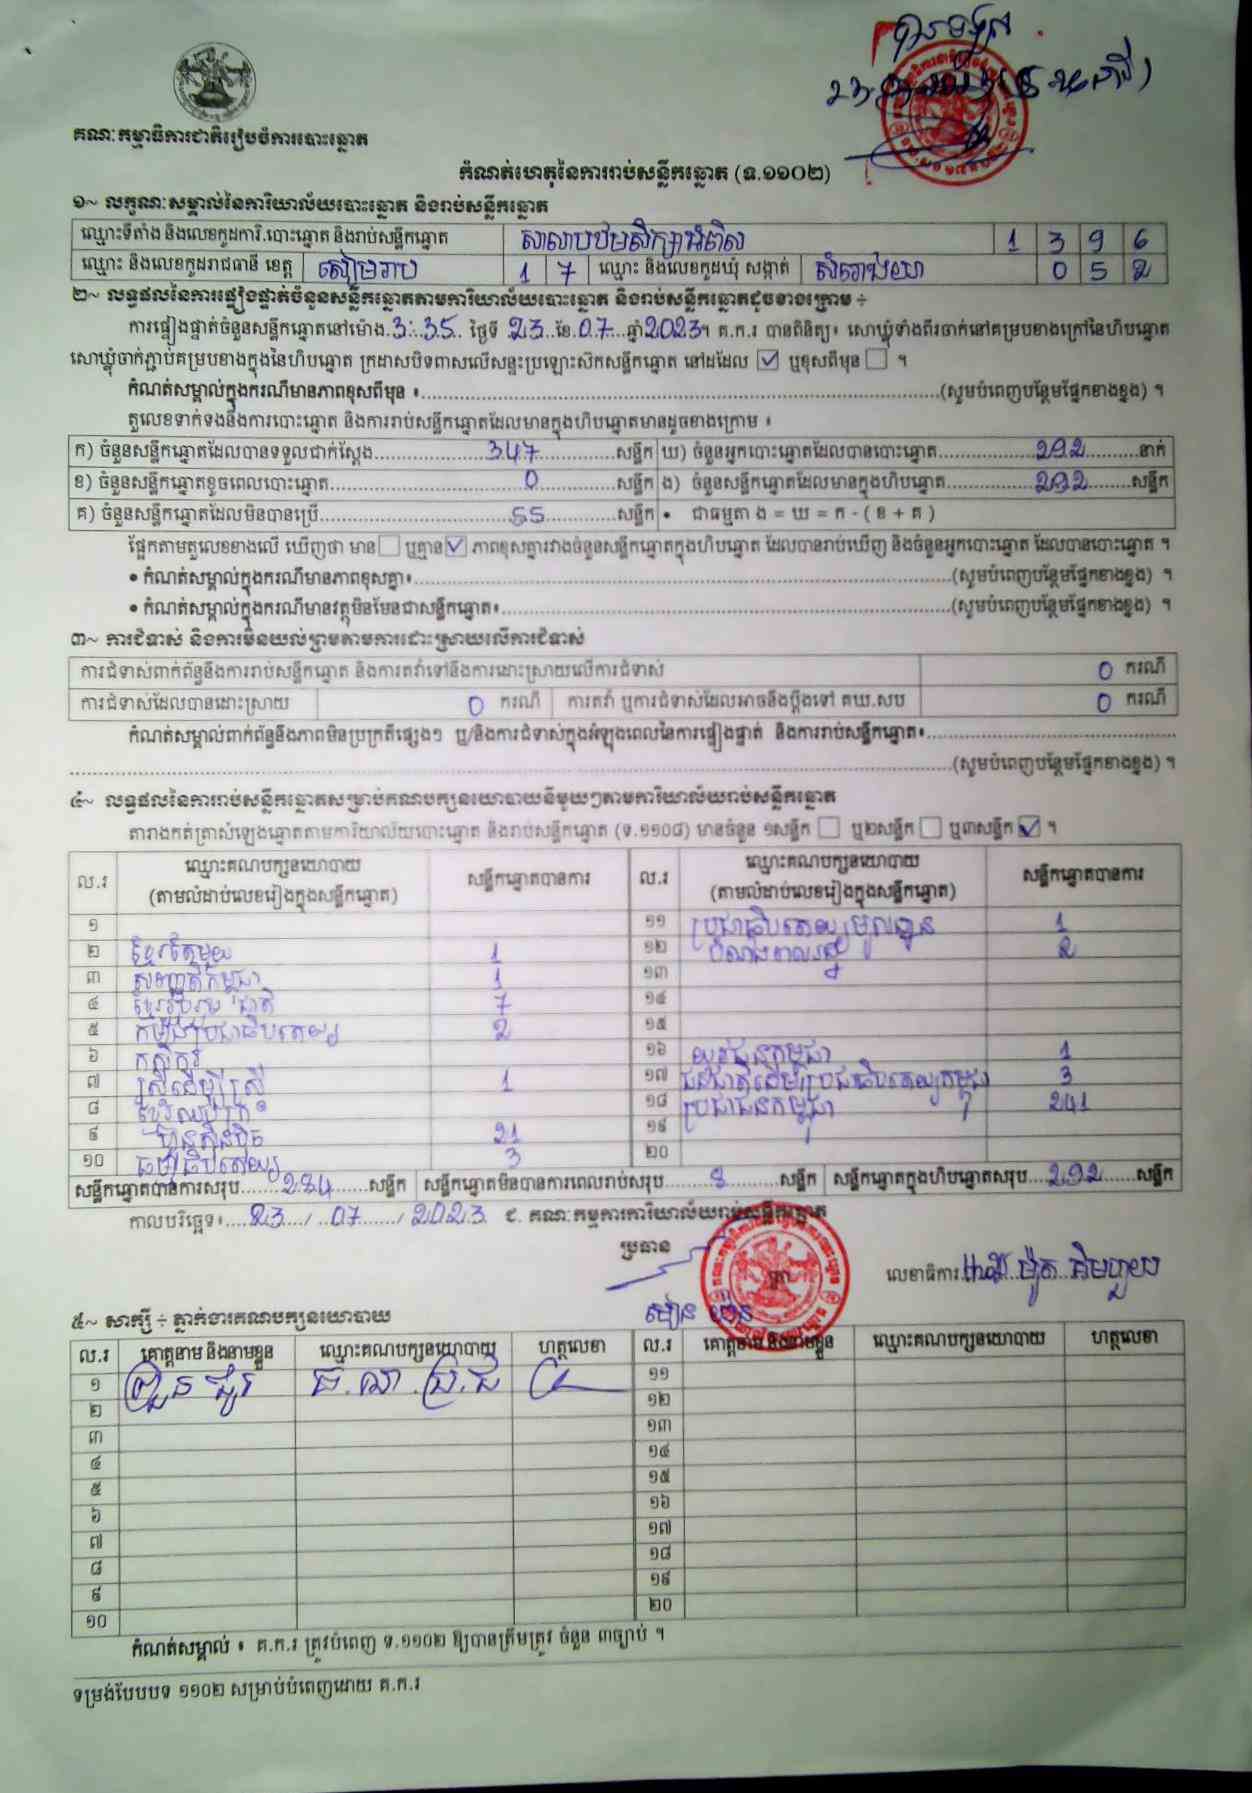 គណៈកម្មាធិការជាតិរៀបចំការបោះឆ្នោត
កំណត់ហេតុនៃការរាប់សន្លឹកឆ្នោត (ទ.១១០២)
១~ លក្ខណៈសម្គាល់នៃការិយាល័យបោះឆ្នោត និងរាប់សន្លឹកឆ្នោត
ឈ្មោះទីតាំង និងលេខកូដការិ.បោះឆ្នោត និងរាប់សន្លឹកឆ្នោត សាលាបឋមសិក្សាអំពិល 1 3 9 6
ឈ្មោះ និងលេខកូដរាជធានី ខេត្ត សៀមរាប 1 7 ឈ្មោះ និងលេខកូដឃុំ សង្កាត់ សំរោងយា 0 5 2
២~ លទ្ធផលនៃការផ្ទៀងផ្ទាត់ចំនួនសន្លឹកឆ្នោតតាមការិយាល័យបោះឆ្នោត និងរាប់សន្លឹកឆ្នោតដូចខាងក្រោម ÷
ការផ្ទៀងផ្ទាត់ចំនួនសន្លឹកឆ្នោតនៅម៉ោង 3:35 ថ្ងៃទី 23 ខែ 07 ឆ្នាំ 2023។ គ.ក.រ បានពិនិត្យ៖ សោឃ្លុំទាំងពីរចាក់នៅគម្របខាងក្រៅនៃហិបឆ្នោត
សោឃ្លុំចាក់ភ្ជាប់គម្របខាងក្នុងនៃហិបឆ្នោត ក្រដាសបិទពាសលើសន្ទះប្រឡោះសិកសន្លឹកឆ្នោត នៅដដែល ☑ ឬខុសពីមុន ☐ ។
កំណត់សម្គាល់ក្នុងករណីមានភាពខុសពីមុន ៖ (សូមបំពេញបន្ថែមផ្នែកខាងខ្នង) ។
តួលេខទាក់ទងនឹងការបោះឆ្នោត និងការរាប់សន្លឹកឆ្នោតដែលមានក្នុងហិបឆ្នោតមានដូចខាងក្រោម ៖
ក) ចំនួនសន្លឹកឆ្នោតដែលបានទទួលជាក់ស្តែង 347 សន្លឹក ឃ) ចំនួនអ្នកបោះឆ្នោតដែលបានបោះឆ្នោត 292 នាក់
ខ) ចំនួនសន្លឹកឆ្នោតខូចពេលបោះឆ្នោត 0 សន្លឹក ង) ចំនួនសន្លឹកឆ្នោតដែលមានក្នុងហិបឆ្នោត 292 សន្លឹក
គ) ចំនួនសន្លឹកឆ្នោតដែលមិនបានប្រើ 55 សន្លឹក • ជាធម្មតា ង = ឃ = ក - ( ខ + គ )
ផ្អែកតាមតួលេខខាងលើ ឃើញថា មាន ☐ ឬគ្មាន ☑ ភាពខុសគ្នារវាងចំនួនសន្លឹកឆ្នោតក្នុងហិបឆ្នោត ដែលបានរាប់ឃើញ និងចំនួនអ្នកបោះឆ្នោត ដែលបានបោះឆ្នោត ។
• កំណត់សម្គាល់ក្នុងករណីមានភាពខុសគ្នា៖ (សូមបំពេញបន្ថែមផ្នែកខាងខ្នង) ។
• កំណត់សម្គាល់ក្នុងករណីមានវត្ថុមិនមែនជាសន្លឹកឆ្នោត៖ (សូមបំពេញបន្ថែមផ្នែកខាងខ្នង) ។
៣~ ការជំទាស់ និងការមិនយល់ព្រមតាមការដោះស្រាយលើការជំទាស់
ការជំទាស់ពាក់ព័ន្ធនឹងការរាប់សន្លឹកឆ្នោត និងការតវ៉ាទៅនឹងការដោះស្រាយលើការជំទាស់ 0 ករណី
ការជំទាស់ដែលបានដោះស្រាយ 0 ករណី ការតវ៉ា ឬការជំទាស់ដែលអាចនឹងប្តឹងទៅ គឃ.សប 0 ករណី
កំណត់សម្គាល់ពាក់ព័ន្ធនឹងភាពមិនប្រក្រតីផ្សេងៗ ឬ/និងការជំទាស់ក្នុងអំឡុងពេលនៃការផ្ទៀងផ្ទាត់ និងការរាប់សន្លឹកឆ្នោត៖
(សូមបំពេញបន្ថែមផ្នែកខាងខ្នង) ។
៤~ លទ្ធផលនៃការរាប់សន្លឹកឆ្នោតសម្រាប់គណបក្សនយោបាយនីមួយៗតាមការិយាល័យរាប់សន្លឹកឆ្នោត
តារាងកត់ត្រាសំឡេងឆ្នោតតាមការិយាល័យបោះឆ្នោត និងរាប់សន្លឹកឆ្នោត (ទ.១១០៨) មានចំនួន ១សន្លឹក ☐ ឬ២សន្លឹក ☐ ឬ៣សន្លឹក ☑ ។
ល.រ ឈ្មោះគណបក្សនយោបាយ (តាមលំដាប់លេខរៀងក្នុងសន្លឹកឆ្នោត) សន្លឹកឆ្នោតបានការ ល.រ ឈ្មោះគណបក្សនយោបាយ (តាមលំដាប់លេខរៀងក្នុងសន្លឹកឆ្នោត) សន្លឹកឆ្នោតបានការ
១ ១១ ប្រជាធិបតេយ្យមូលដ្ឋាន 1
២ ខ្មែរតែមួយ 1 ១២ 2
៣ សញ្ជាតិកម្ពុជា 1 ១៣
៤ ខ្មែររួបរួមជាតិ 7 ១៤
៥ កម្លាំងប្រជាធិបតេយ្យ 2 ១៥
៦ កសិករ ១៦ យុវជនកម្ពុជា 1
៧ ស្រីដើម្បីស្រី 1 ១៧ ជនជាតិដើមប្រជាធិបតេយ្យកម្ពុជា 3
៨ ១៨ ប្រជាជនកម្ពុជា 241
៩ ហ៊្វុនស៊ិនប៉ិច 21 ១៩
១០ ធម្មាធិបតេយ្យ 3 ២០
សន្លឹកឆ្នោតបានការសរុប 284 សន្លឹក សន្លឹកឆ្នោតមិនបានការពេលរាប់សរុប 8 សន្លឹក សន្លឹកឆ្នោតក្នុងហិបឆ្នោតសរុប 292 សន្លឹក
កាលបរិច្ឆេទ៖ 23 / 07 / 2023 ជ. គណៈកម្មការការិយាល័យរាប់សន្លឹកឆ្នោត
ប្រធាន
លេខាធិការ
៥~ សាក្សី ÷ ភ្នាក់ងារគណបក្សនយោបាយ
ល.រ គោត្តនាម និងនាមខ្លួន ឈ្មោះគណបក្សនយោបាយ ហត្ថលេខា ល.រ គោត្តនាម និងនាមខ្លួន ឈ្មោះគណបក្សនយោបាយ ហត្ថលេខា
១ ១១
២ ១២
៣ ១៣
៤ ១៤
៥ ១៥
៦ ១៦
៧ ១៧
៨ ១៨
៩ ១៩
១០ ២០
កំណត់សម្គាល់ ៖ គ.ក.រ ត្រូវបំពេញ ទ.១១០២ ឱ្យបានត្រឹមត្រូវ ចំនួន ៣ច្បាប់ ។
ទម្រង់បែបបទ ១១០២ សម្រាប់បំពេញដោយ គ.ក.រ